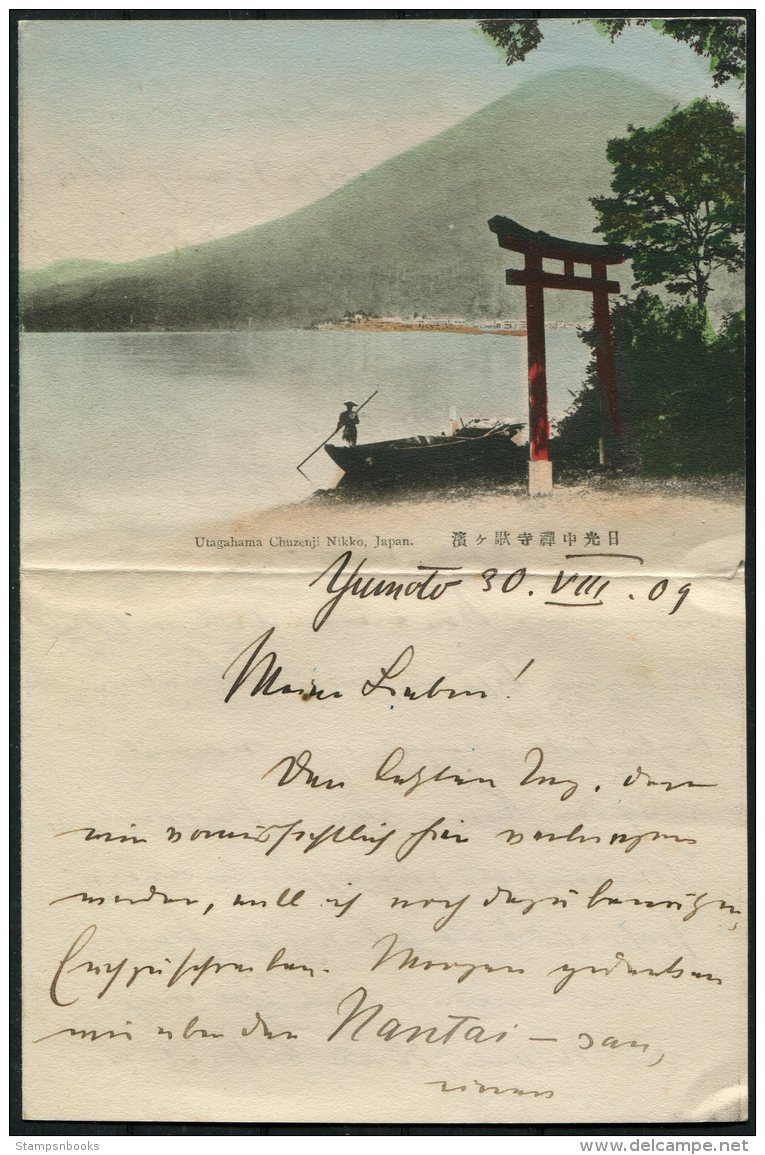 Utagahama Chuzenji Nikko, Japan. 日光中禪寺歌ヶ濱
Yumoto 30. VIII. 09
Meine Lieben!
Den letzten Tag, den
wir voraussichtlich hier verbringen
werden, will ich noch dazu benützen,
Euch zu schreiben. Morgen gedenken
wir über den Nantai-san,
einen
Stampsnbooks
www.delcampe.net